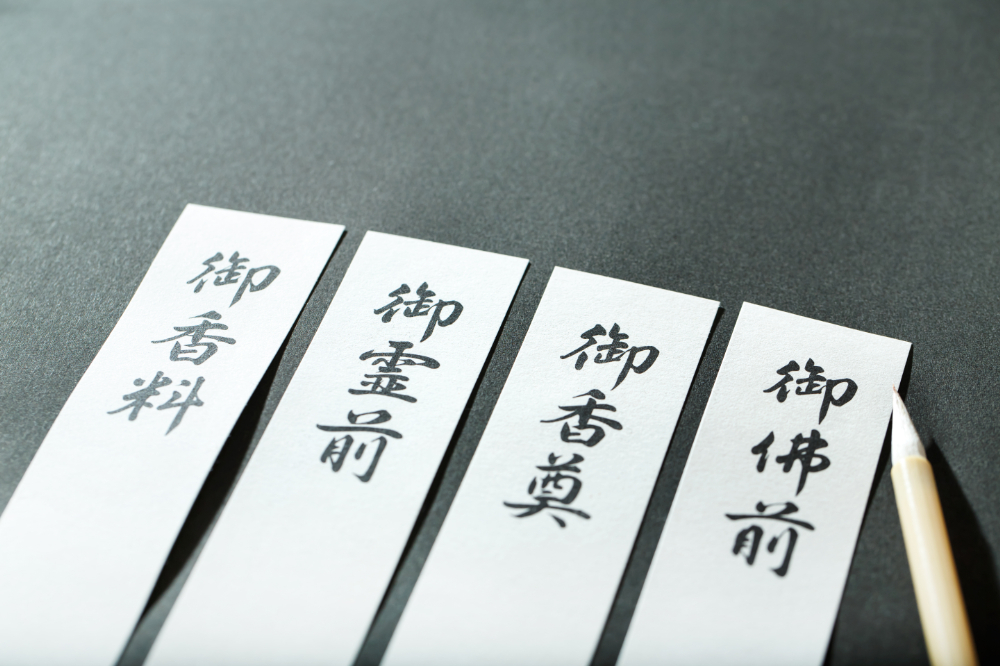 御香料
御霊前
御香奠
御佛前